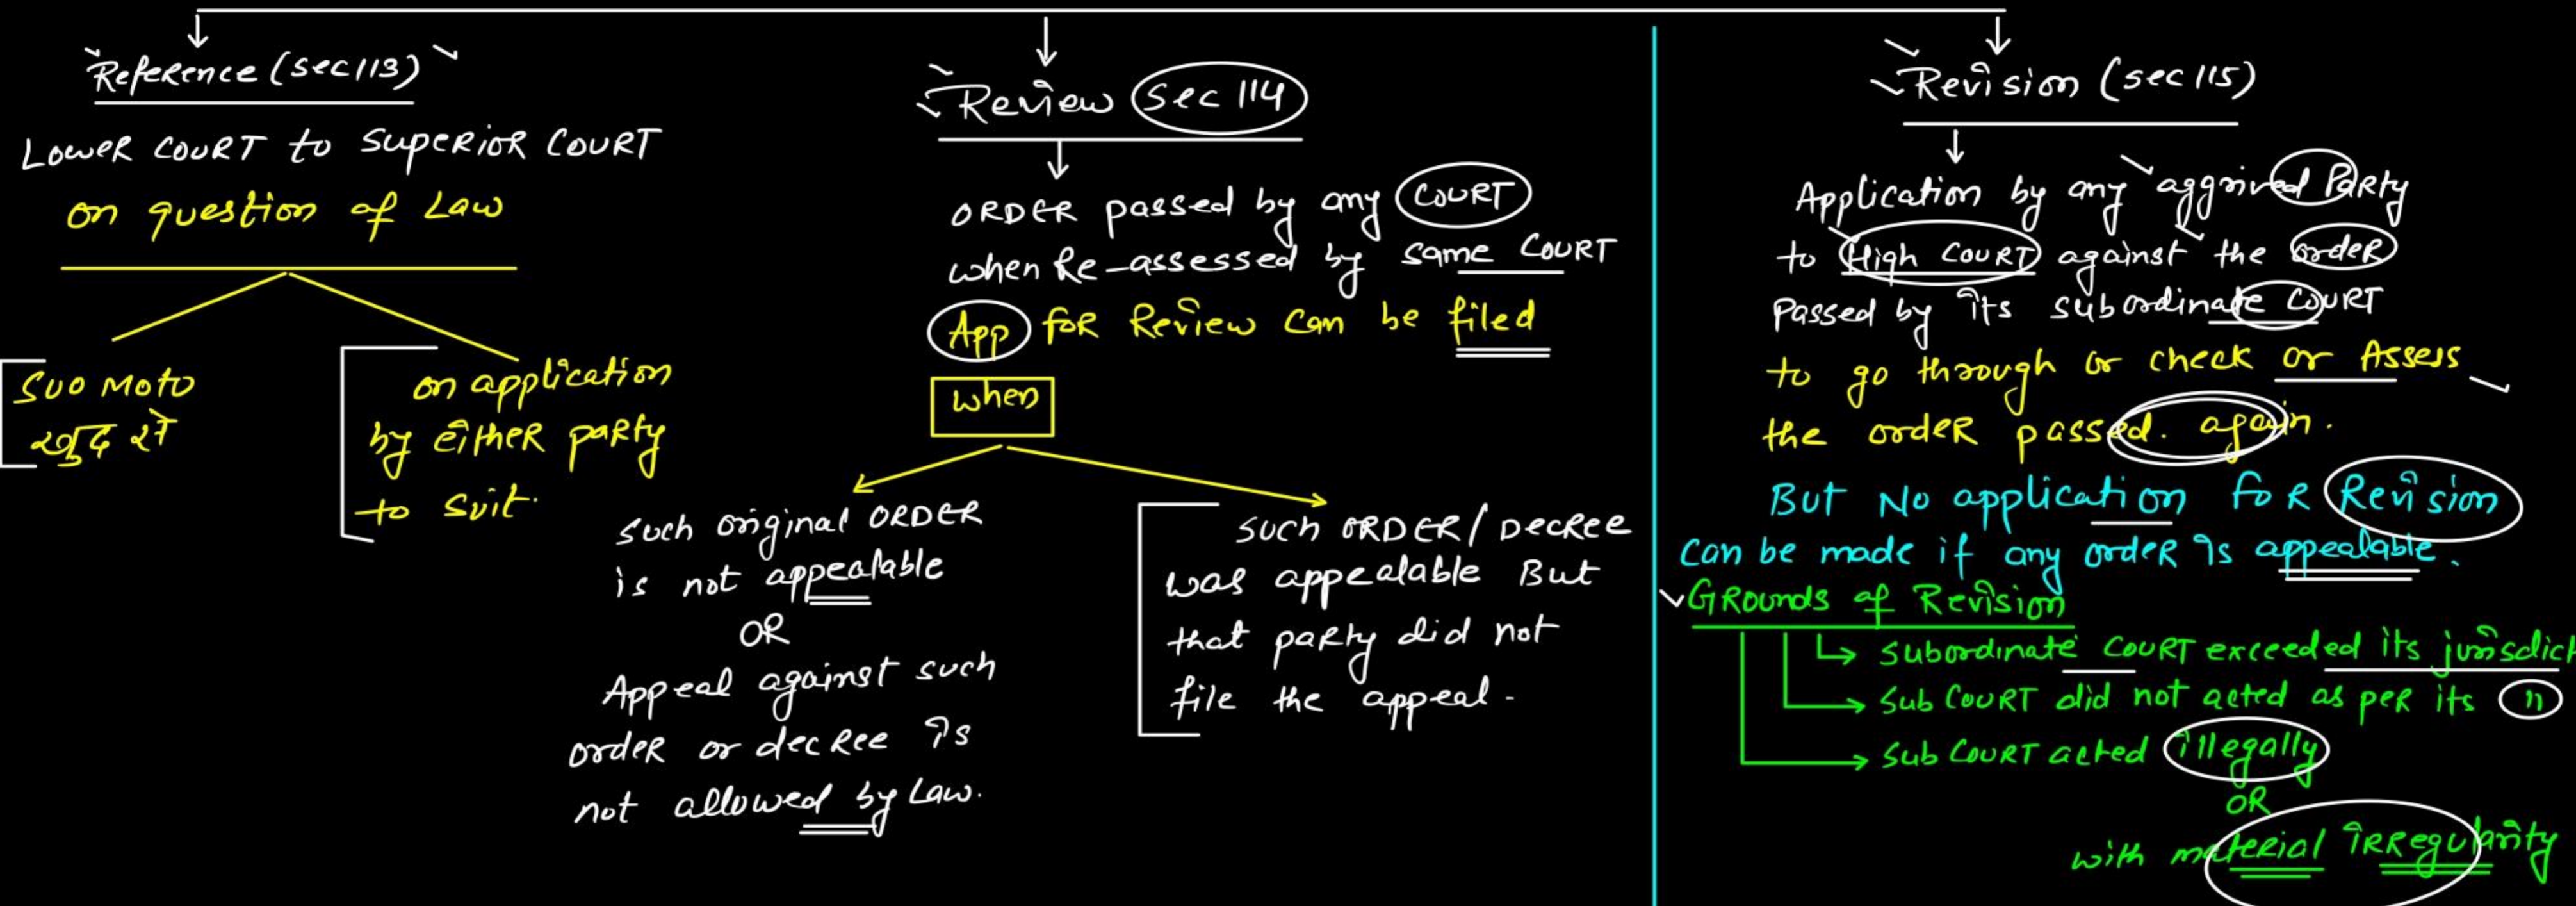 Reference (sec 113)
Lower court to superior court
on question of Law
Suo Moto
खुद से
on application
by either party
to suit.
Review sec 114
ORDER passed by any court
when Re-assessed by same court
App for Review can be filed
when
such original ORDER
is not appealable
OR
Appeal against such
order or decree is
not allowed by Law.
such ORDER/Decree
was appealable But
that party did not
file the appeal -
Revision (sec 115)
Application by any aggrived Party
to High court against the order
Passed by its subordinate court
to go through or check or Assess
the order passed. again.
But No application for Revision
can be made if any order is appealable.
Grounds of Revision
subordinate court exceeded its jurisdict
Sub court did not acted as per its "
Sub court acted illegally
OR
with material irregularity